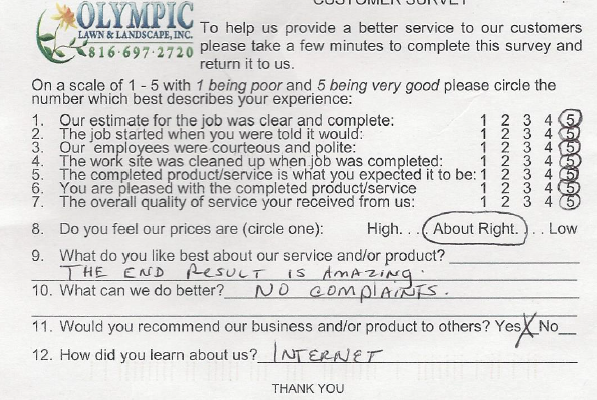 CUSTOMER SURVEY
OLYMPIC
LAWN & LANDSCAPE, INC.
816-697-2720
To help us provide a better service to our customers
please take a few minutes to complete this survey and
return it to us.
On a scale of 1 - 5 with 1 being poor and 5 being very good please circle the
number which best describes your experience:
1. Our estimate for the job was clear and complete: 1 2 3 4 5
2. The job started when you were told it would: 1 2 3 4 5
3. Our employees were courteous and polite: 1 2 3 4 5
4. The work site was cleaned up when job was completed: 1 2 3 4 5
5. The completed product/service is what you expected it to be: 1 2 3 4 5
6. You are pleased with the completed product/service 1 2 3 4 5
7. The overall quality of service your received from us: 1 2 3 4 5
8. Do you feel our prices are (circle one): High. . . About Right. . . Low
9. What do you like best about our service and/or product?
THE END RESULT IS AMAZING.
10. What can we do better? NO COMPLAINTS.
11. Would you recommend our business and/or product to others? Yes X No
12. How did you learn about us? INTERNET
THANK YOU